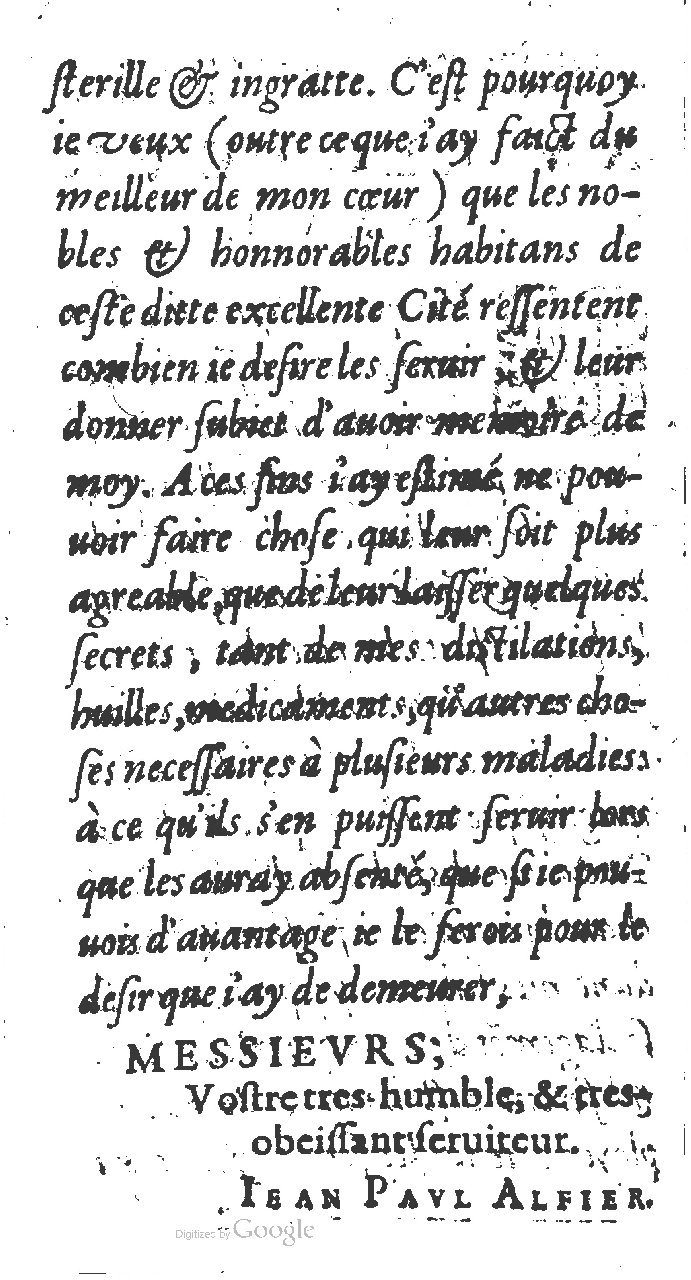 ſterille & ingratte. C'eſt pourquoy
ie veux (outre ce que i'ay faict du
meilleur de mon cœur) que les no-
bles & honnorables habitans de
ceſte ditte excellente Cité reſſentent
combien ie deſire les ſeruir & leur
donner ſubiet d'auoir memoire de
moy. A ces fins i'ay eſtimé ne pou-
uoir faire choſe qui leur ſoit plus
agreable, que de leur laiſſer quelques
ſecrets, tant de mes diſtilations,
huilles, medicaments, qu'autres cho-
ſes neceſſaires à pluſieurs maladies:
à ce qu'ils s'en puiſſent ſeruir lors
que les auray abſenté, que ſi ie pou-
uois d'auantage ie le ferois pour le
deſir que i'ay de demeurer,
MESSIEVRS,
Voſtre tres-humble, & tres-
obeiſſant ſeruiteur.
IEAN PAVL ALFIER.
Digitizes by Google